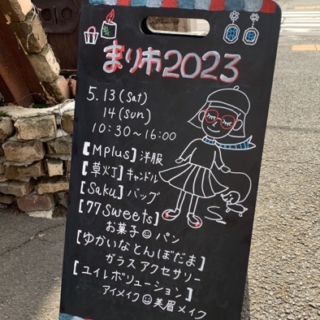 まり市2023
5.13(Sat)
14(Sun)
10:30~16:00
【Mplus】洋服
【草火灯】キャンドル
【Saku】バッグ
【77Sweets】
お菓子☺パン
【ゆかいなとんぼだま】
ガラスアクセサリー
【ユイレボリューション】
アイメイク☺美眉メイク